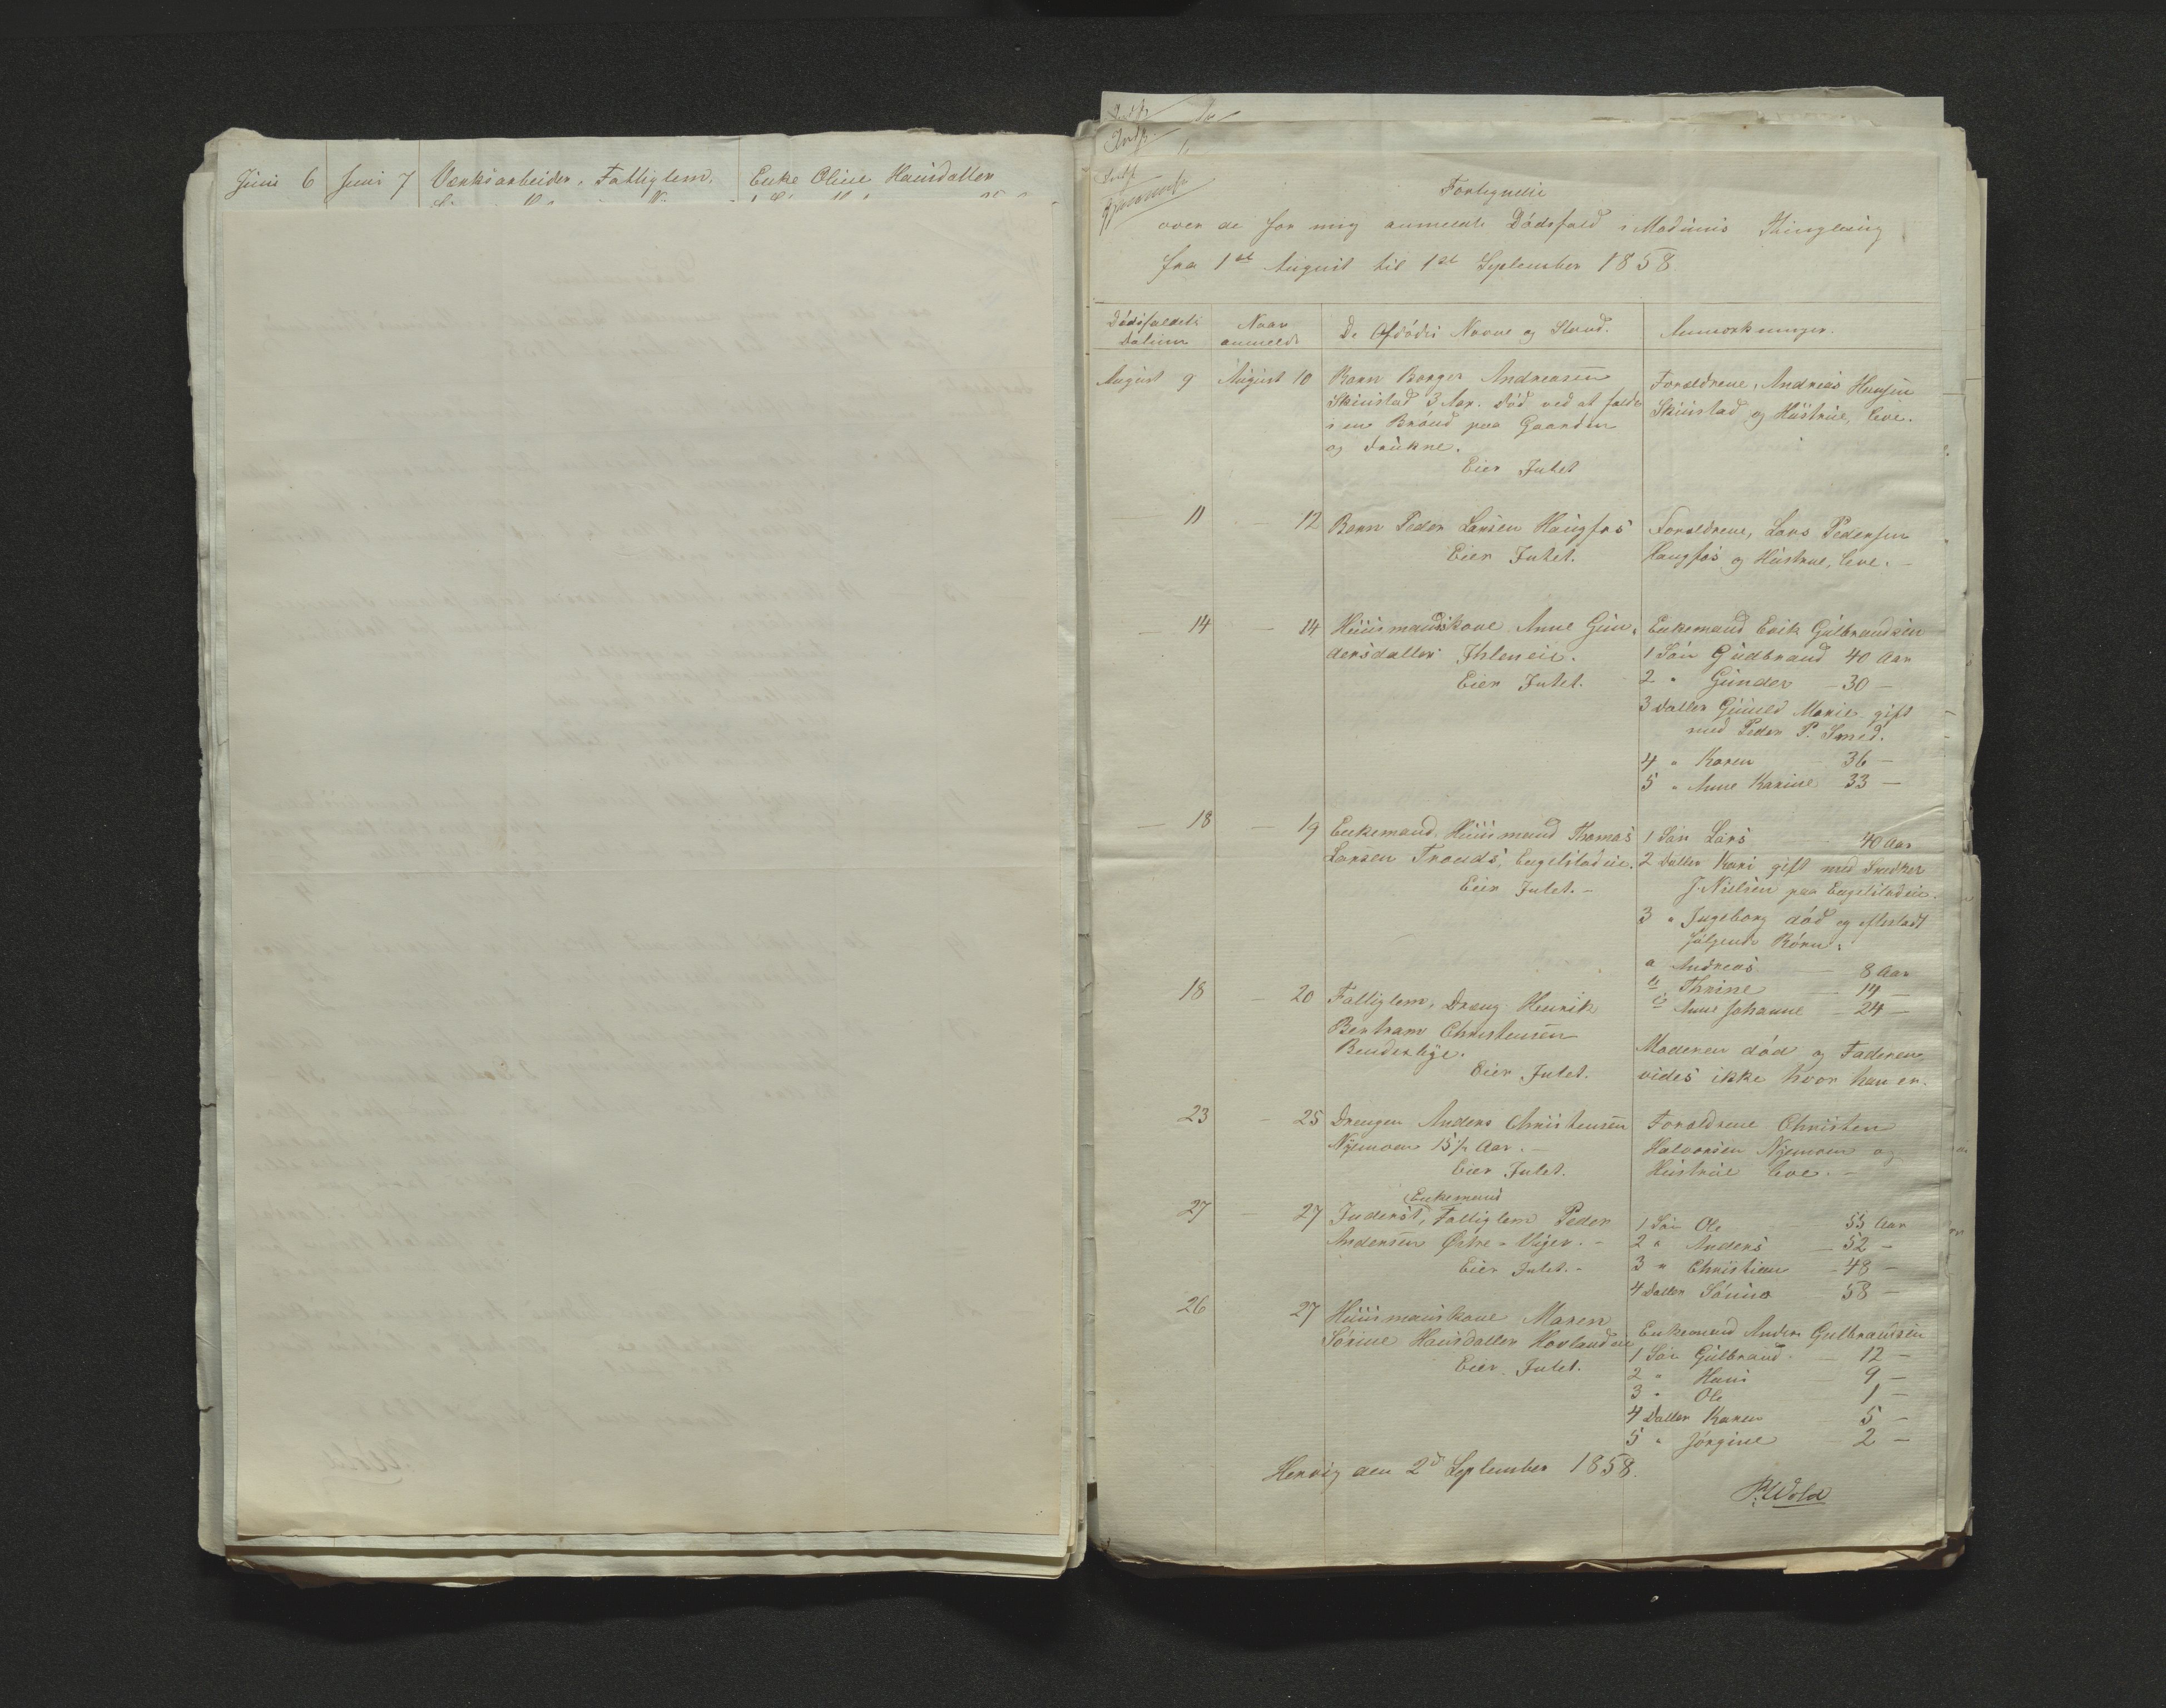 Juni 6 Juni 7 Værksarbeider, Fattiglem. Enke Oline Hansdatter
Fortegnelse
over de for mig anmeldte Dødsfald i Modums Thinglaug
fra 1ste August til 1ste September 1858
Dødsfaldets Datum
Naar anmeldt
De Afdødes Navne og Stand.
Anmærkninger.
August 9 August 10 Barn Borger Andreasen
Skinstad 3 Aar. død ved at falde
i en Brønd paa Gaarden
og drukne.
Eier Intet
Forældrene, Andreas Hansen
Skinstad og Hustrue, leve.
11 – 12 Barn Peder Larsen Haugfos
Eier Intet.
Forældrene, Lars Pedersen
Haugfos og Hustrue, leve. –
– 14 – 14 Huusmandskone Anne Gun-
dersdatter Ihleneie.
Eier Intet.
Enkemand Erik Gulbrandsen
1 Søn Gudbrand 40 Aar
2 " Gunder – 30 –
3 Datter Gunild Marie gift
med Peder P. Smed.
4 " Karen 36 –
5 " Anne Karine 33 –
– 18 – 19 Enkemand Huusmand Thomas
Larsen Tronds, Engelstadeie.
Eier Intet. –
1 Søn Lars – 40 Aar
2 Datter Kari gift med Snedker
J. Nielsen paa Engelstadeie.
3 " Ingeborg død og efterladt
følgende Børn:
a Andreas – 8 Aar
b Thrine – 14 –
c Anne Johanne – 24 –
18 – 20 Fattiglem, Dreng Henrik
Bertram Christensen
Eier Intet.
Moderen død og Faderen
vides ikke hvor han er.
23 – 25 Drengen Anders Christensen
Nyemoen 15½ Aar. –
Eier Intet.
Forældrene Christen
Halvorsen Nyemoen og
Hustrue leve. –
27 – 27 Inderst, Enkemand Fattiglem Peder
Andersen Østre-
Eier Intet. –
1 Søn Ole 55 Aar
2 " Anders – 52 –
3 " Christian – 48 –
4 Datter – 58 –
26 27 Huusmanskone Maren
Sørine Hansdatter Hovlandeie
Eier Intet.
Enkemand Anders Gulbrandsen
1 Søn Gulbrand – 12 –
2 " Hans 9 –
3 " Ole 1 –
4 Datter Karen 5 –
5 " Jørgine – 2 –
den 2d September 1858.
P. Wold